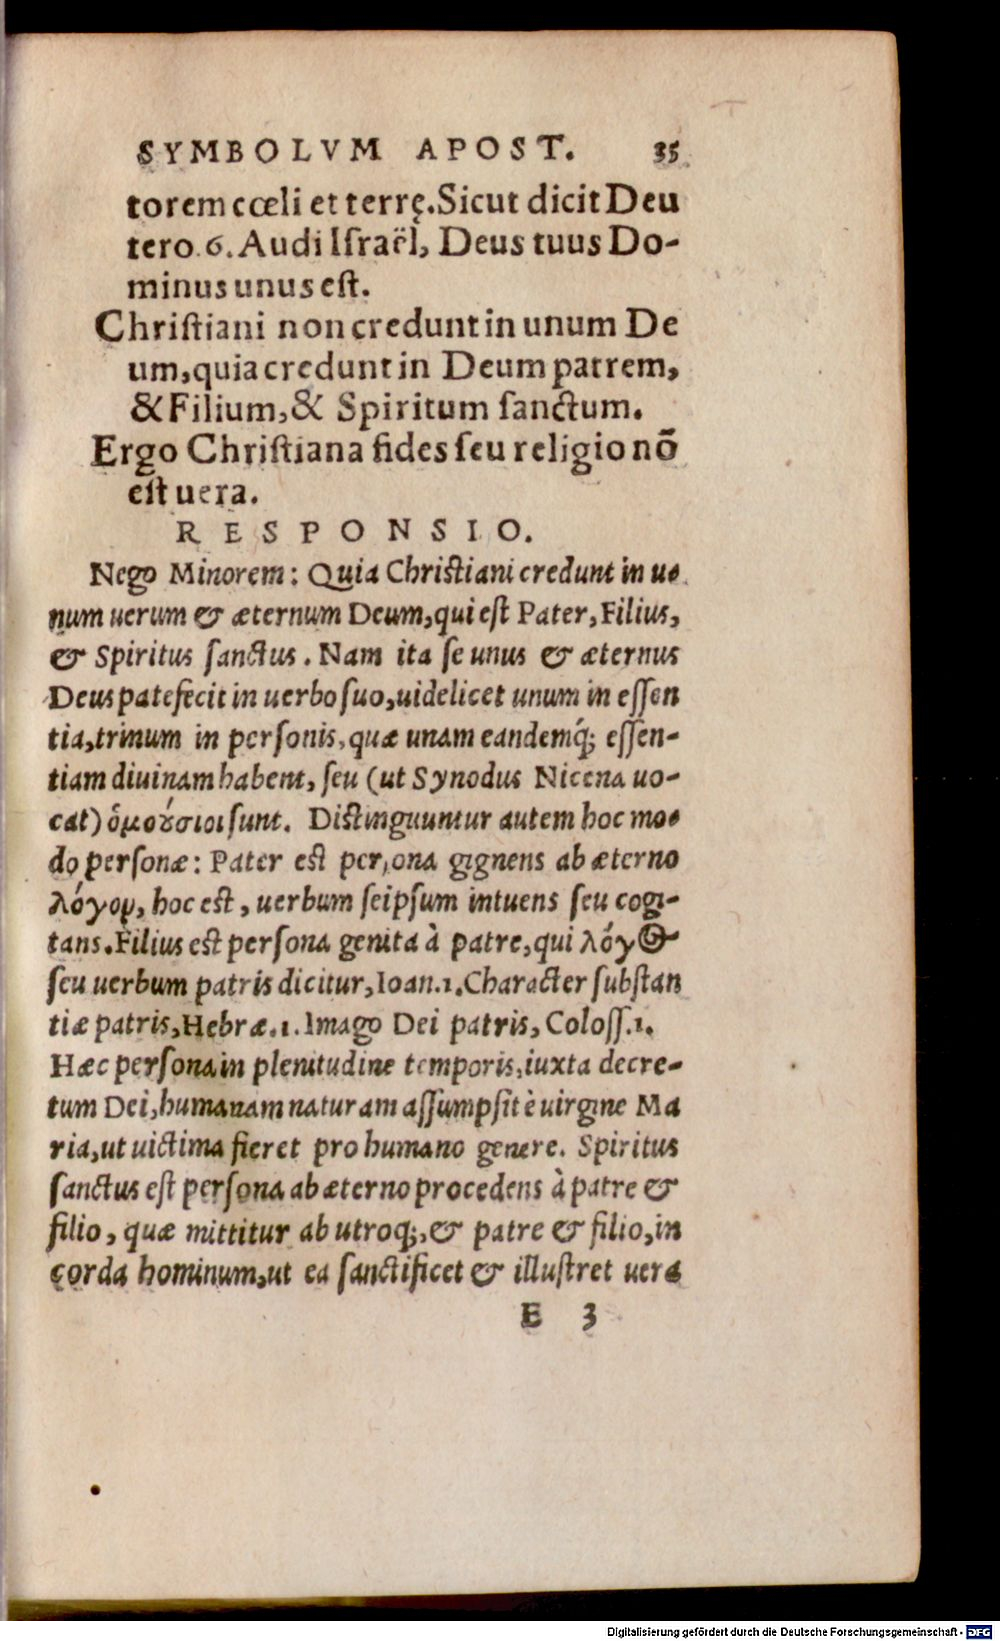 SYMBOLVM APOST. 35
torem cœli et terrę. Sicut dicit Deu
tero. 6. Audi Iſraël, Deus tuus Do-
minus unus eſt.
Chriſtiani non credunt in unum De
um, quia credunt in Deum patrem,
& Filium, & Spiritum ſanctum.
Ergo Chriſtiana fides ſeu religio nō
eſt uera.
RESPONSIO.
Nego Minorem: Quia Chriſtiani credunt in u-
num uerum & æternum Deum, qui eſt Pater, Filius,
& Spiritus ſanctus. Nam ita ſe unus & æternus
Deus patefecit in uerbo ſuo, uidelicet unum in eſſen
tia, trinum in perſonis, quæ unam eandemq́; eſſen-
tiam diuinam habent, ſeu (ut Synodus Nicena uo-
cat) ὁμούσιοι ſunt. Diſtinguuntur autem hoc mo-
do perſonæ: Pater eſt perſona gignens ab æterno
λόγον, hoc eſt, uerbum ſeipſum intuens ſeu cogi-
tans. Filius eſt perſona genita à patre, qui λόγος
ſeu uerbum patris dicitur, Ioan. 1. Character ſubſtan
tiæ patris, Hebræ. 1. Imago Dei patris, Coloſſ. 1.
Hæc perſona in plenitudine temporis, iuxta decre-
tum Dei, humanam naturam aſſumpſit è uirgine Ma
ria, ut uictima fieret pro humano genere. Spiritus
ſanctus eſt perſona ab æterno procedens à patre &
filio, quæ mittitur ab utroq;, & patre & filio, in
corda hominum, ut ea ſanctificet & illuſtret uera
E 3
Digitalisierung gefördert durch die Deutsche Forschungsgemeinschaft - DFG